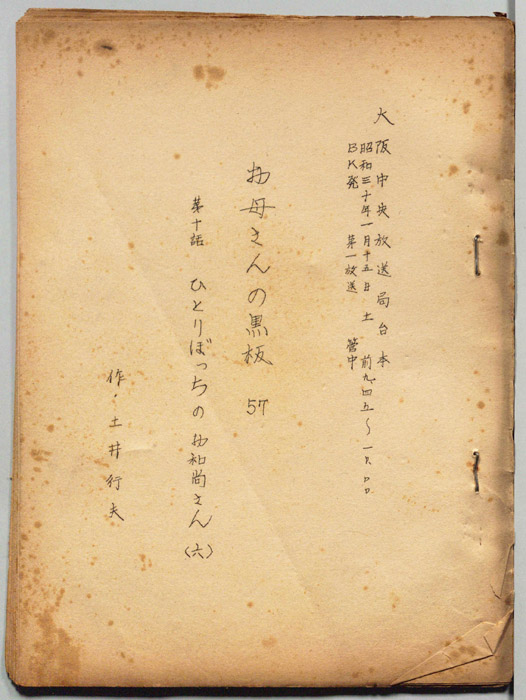 大阪中央放送局台本
昭和三十年一月十五日 土 前九.四五〜一〇.〇〇
BK発 第一放送 管中
お母さんの黒板 57
第十話 ひとりぼっちのお和尚さん（六）
作・土井行夫